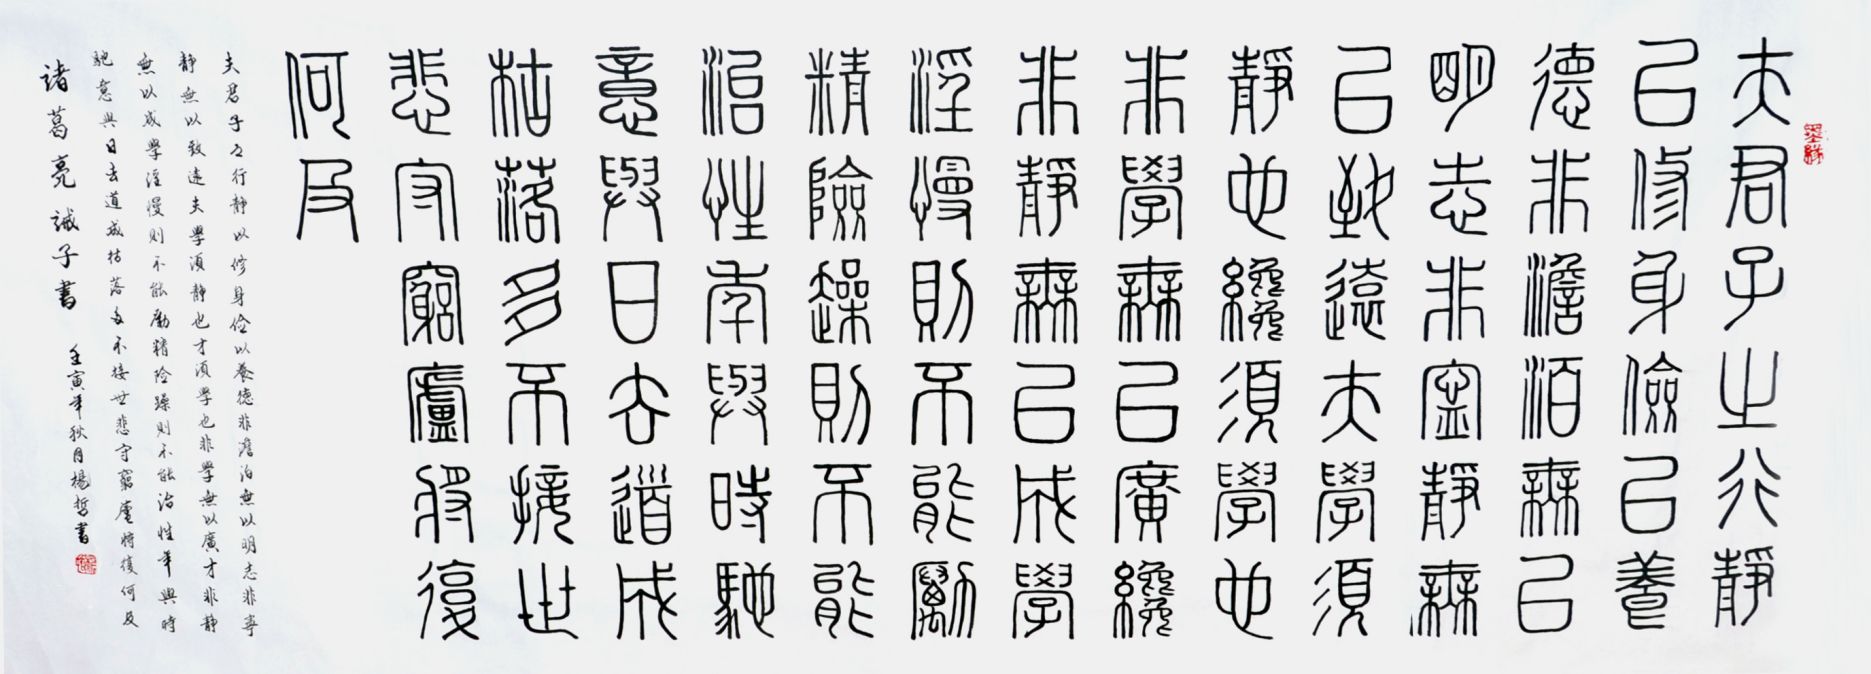 墨緣
夫君子之行靜
以修身儉以養
德非澹泊無以
明志非寧靜無
以致遠夫學須
靜也纔須學也
非學無以廣纔
非靜無以成學
淫慢則不能勵
精險躁則不能
治性年與時馳
意與日去道成
枯落多不接世
悲守窮廬將復
何及
夫君子之行靜以修身儉以養德非澹泊無以明志非寧
靜無以致遠夫學須靜也才須學也非學無以廣才非靜
無以成學淫慢則不能勵精險躁則不能治性年與時
馳意與日去道成枯落多不接世悲守窮廬將復何及
諸葛亮誡子書 壬寅年秋月楊哲書